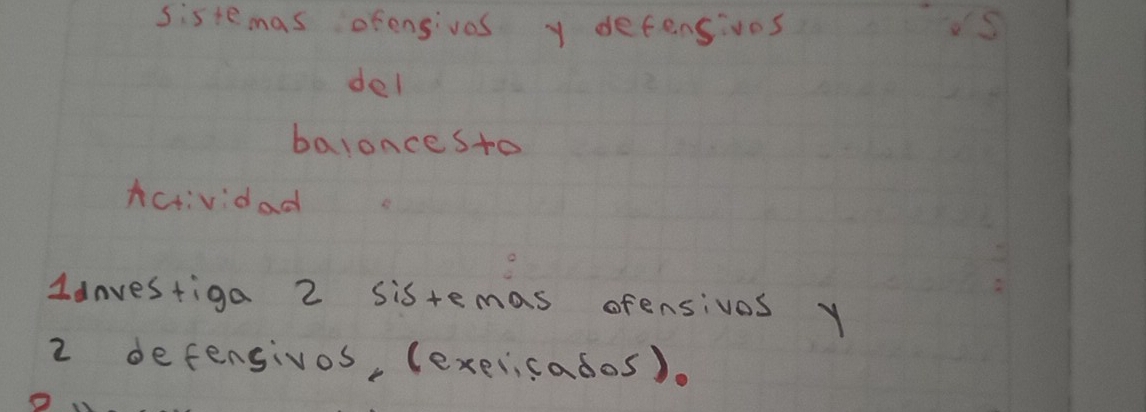 sistemas ofensivos y defensivos
del
baloncesto
Actividad
1 investiga 2 sistemas ofensivos y
2 defensivos, (explicados).